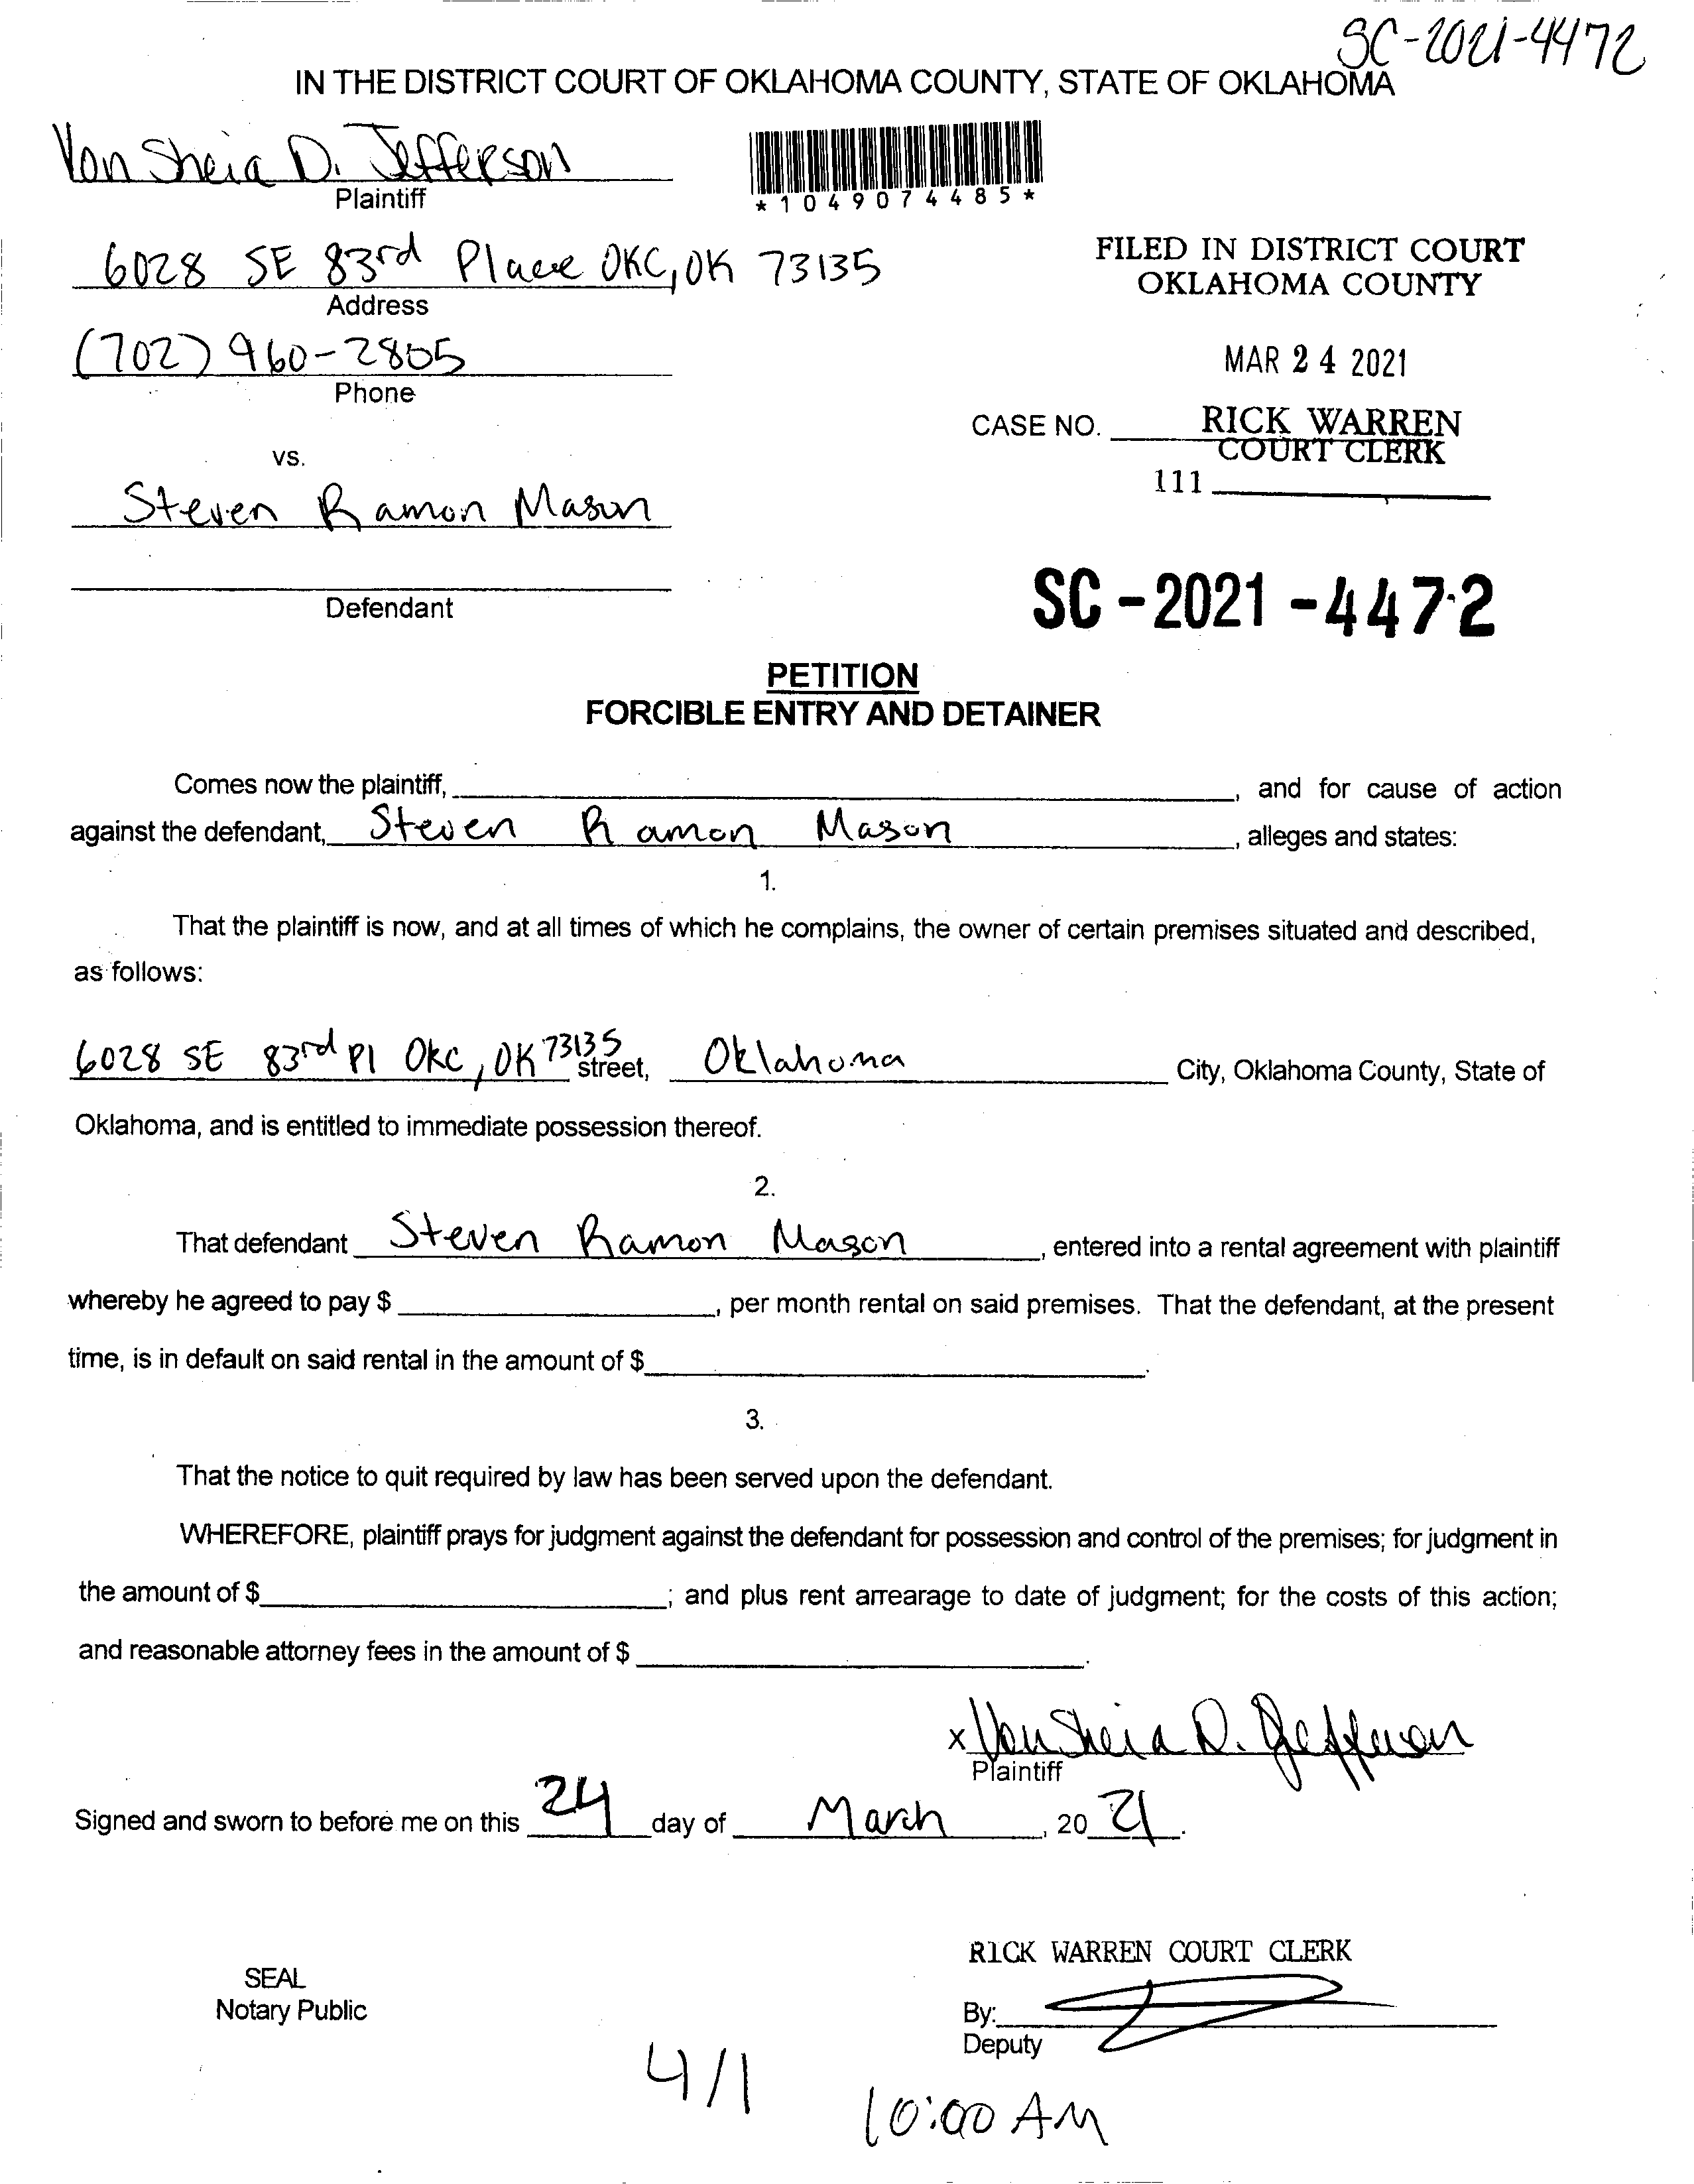 SC-2021-4472
IN THE DISTRICT COURT OF OKLAHOMA COUNTY, STATE OF OKLAHOMA
VonSheia D. Jefferson
Plaintiff
*1049074485*
6028 SE 83rd Place OKC, OK 73135
Address
FILED IN DISTRICT COURT
OKLAHOMA COUNTY
(702) 960-2805
Phone
MAR 24 2021
CASE NO. RICK WARREN
COURT CLERK
vs.
111
Steven Ramon Mason
Defendant
SC-2021-4472
PETITION
FORCIBLE ENTRY AND DETAINER
Comes now the plaintiff, , and for cause of action
against the defendant, Steven Ramon Mason, alleges and states:
1.
That the plaintiff is now, and at all times of which he complains, the owner of certain premises situated and described,
as follows:
6028 SE 83rd Pl OKC, OK 73135 street, Oklahoma City, Oklahoma County, State of
Oklahoma, and is entitled to immediate possession thereof.
2.
That defendant Steven Ramon Mason, entered into a rental agreement with plaintiff
whereby he agreed to pay $ , per month rental on said premises. That the defendant, at the present
time, is in default on said rental in the amount of $ .
3.
That the notice to quit required by law has been served upon the defendant.
WHEREFORE, plaintiff prays for judgment against the defendant for possession and control of the premises; for judgment in
the amount of $ ; and plus rent arrearage to date of judgment; for the costs of this action;
and reasonable attorney fees in the amount of $ .
x VonSheia D. Jefferson
Plaintiff
Signed and sworn to before me on this 24 day of March, 20 21.
RICK WARREN COURT CLERK
SEAL
Notary Public
By:
Deputy
4/1
10:00 AM